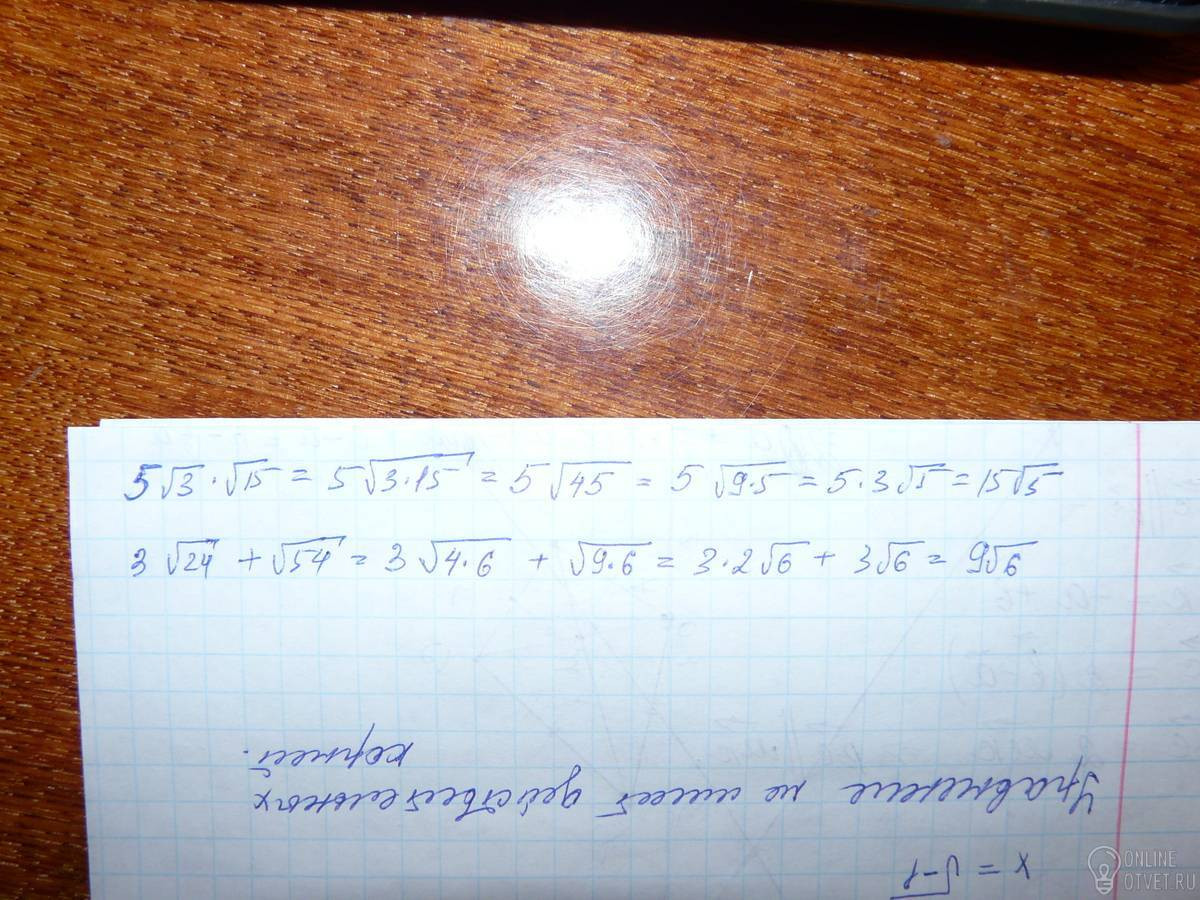 5√3·√15 = 5√3·15 = 5√45 = 5√9·5 = 5·3√5 = 15√5
3√24 + √54 = 3√4·6 + √9·6 = 3·2√6 + 3√6 = 9√6
x = √-1
Уравнение не имеет действительных
корней.
ONLINE
OTVET.RU